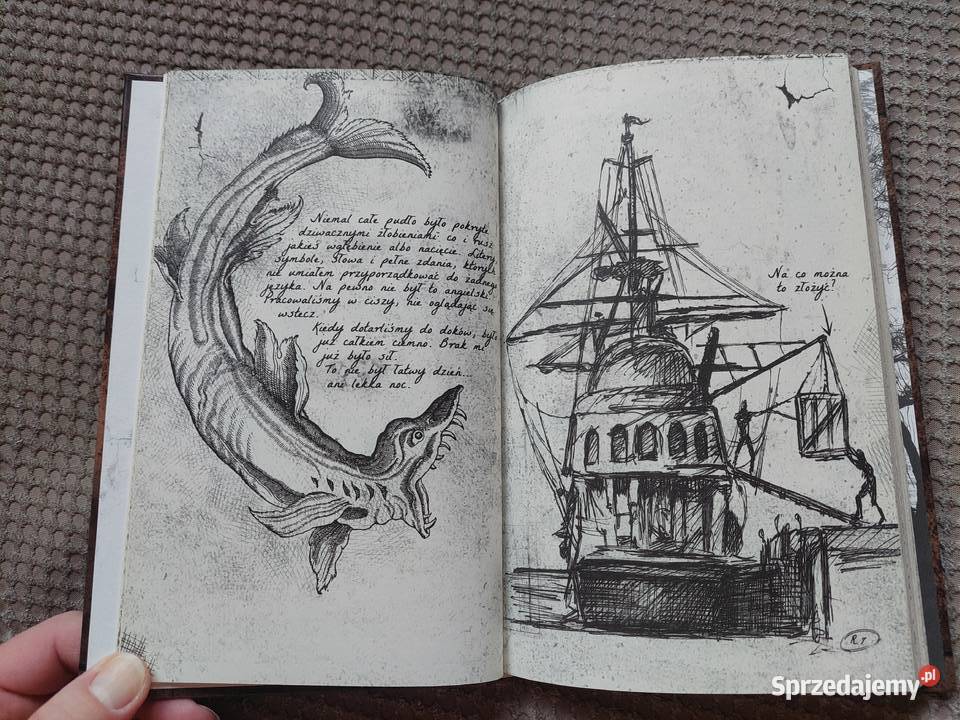 Niemal całe pudło było pokryte
dziwacznymi żłobieniami co i rusz
jakieś wgłębienie albo nacięcie. Litery,
symbole, słowa i pełne zdania, których
nie umiałem przyporządkować do żadnego
języka. Na pewno nie był to angielski.
Pracowaliśmy w ciszy, nie oglądając się
wstecz.
Kiedy dotarliśmy do doków, było
już całkiem ciemno. Brak mi
już było sił.
To nie był łatwy dzień...
ani lekka noc.
Na co można
to złożyć?
R.T
Sprzedajemy.pl